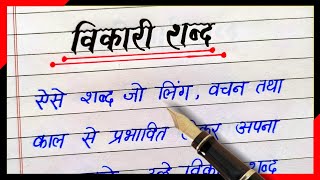 विकारी शब्द
ऐसे शब्द जो लिंग, वचन तथा
काल से प्रभावित होकर अपना
उन्हें विकारी शब्द